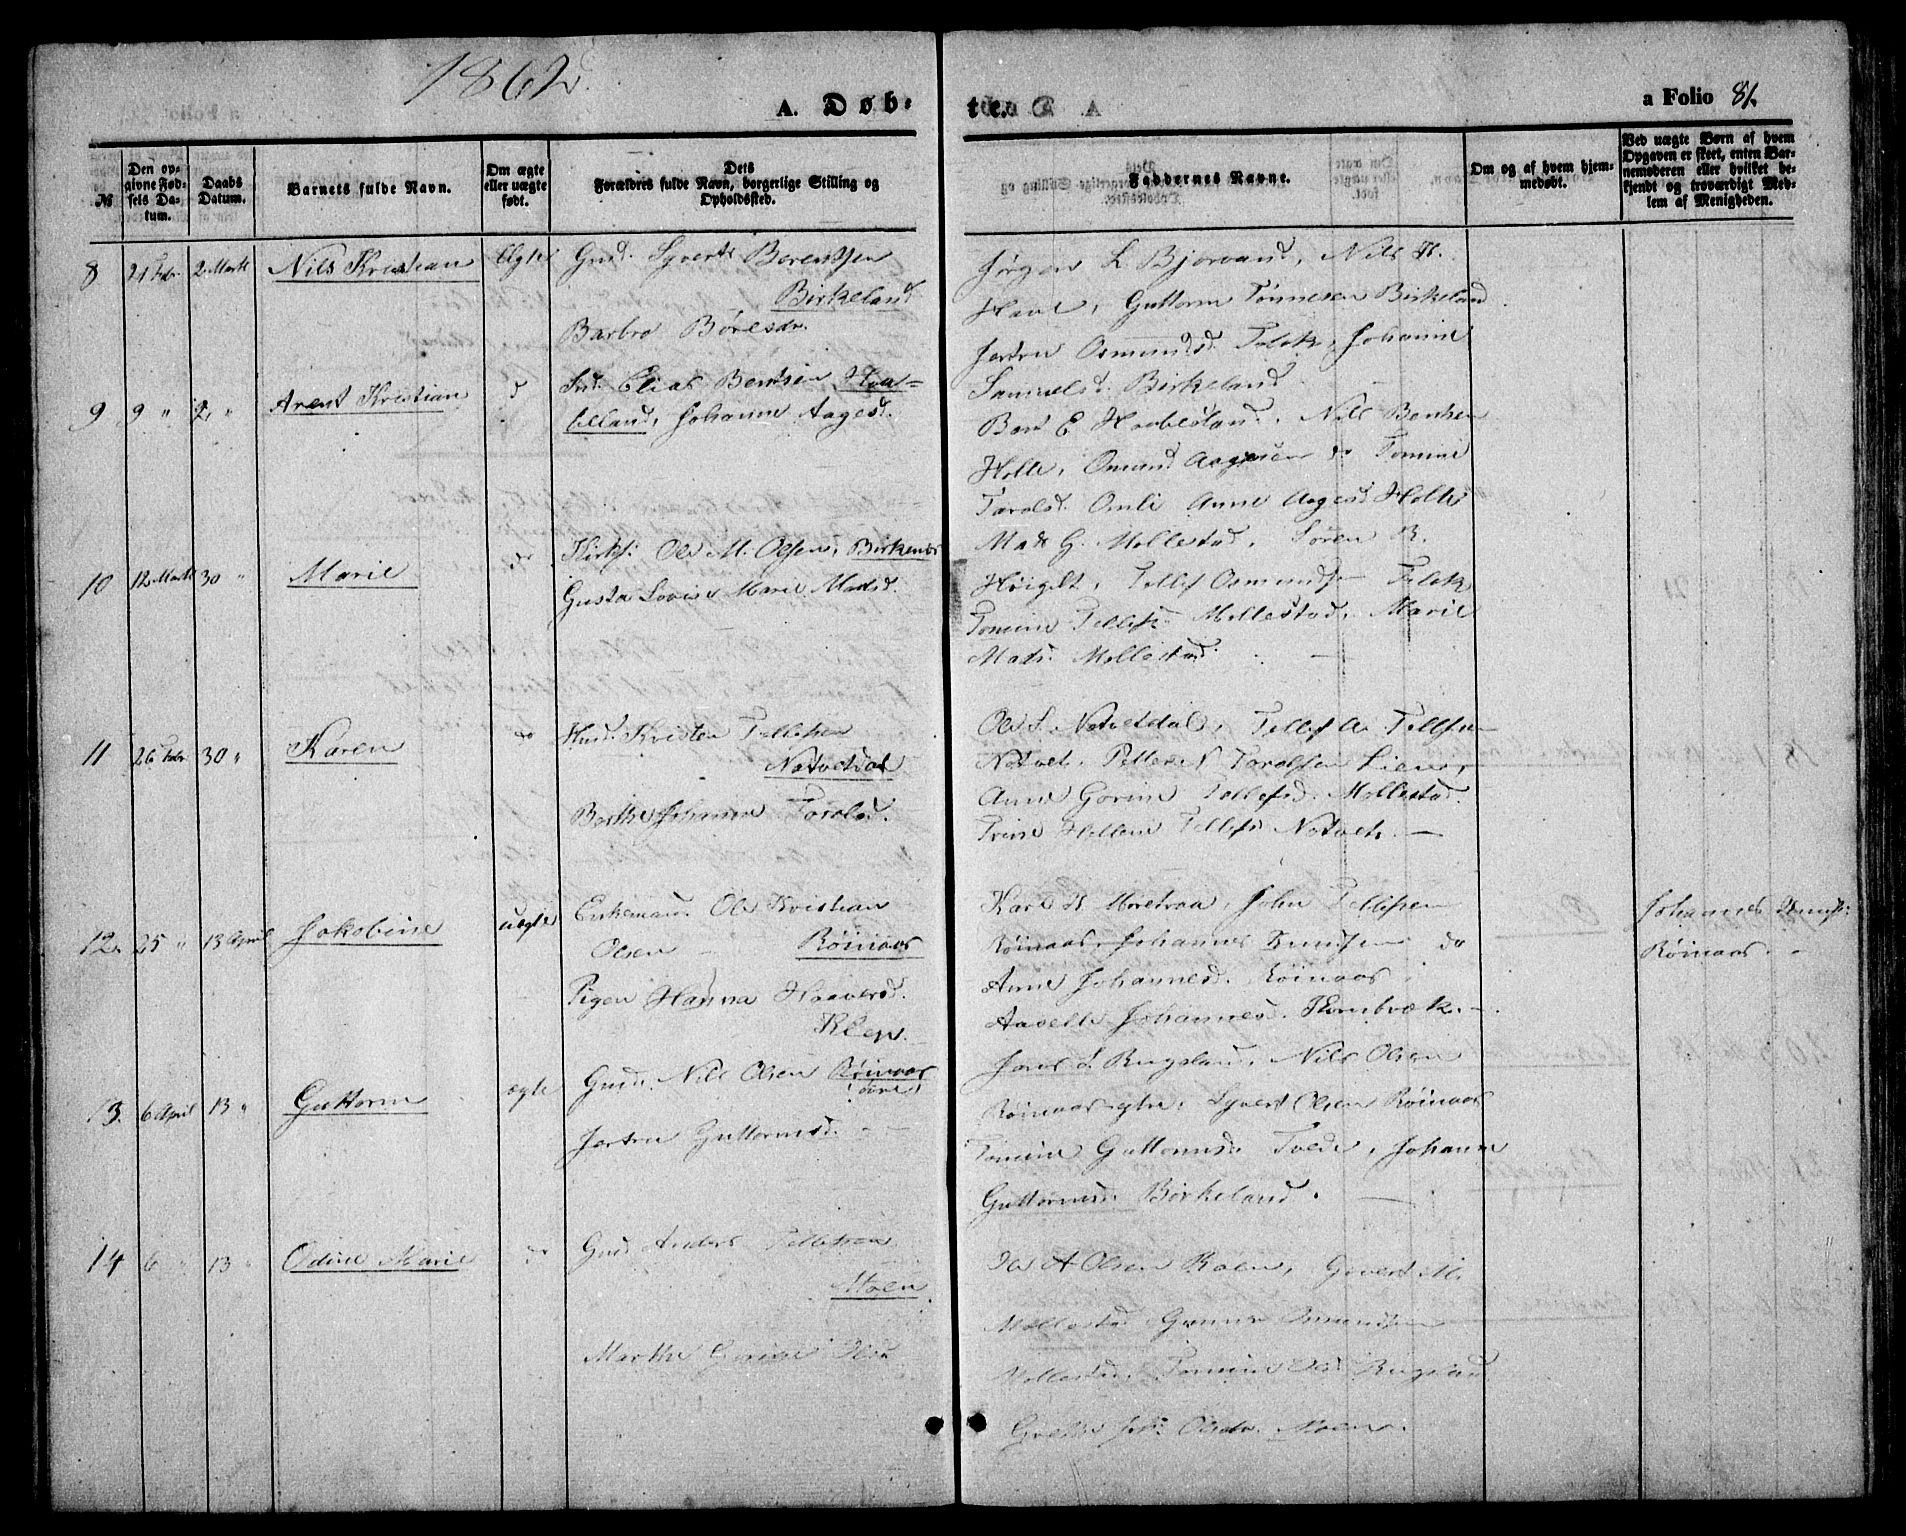 1862
A. Døb-
te.
a Folio 81.
№
Den op-
givne Fød-
sels Da-
tum.
Daabs
Datum.
Barnets fulde Navn.
Om ægte
eller uægte
født.
Dets
Forældres fulde Navn, borgerlige Stilling og
Opholdssted.
Faddernes Navne.
Om og af hvem hjem-
medøbt.
Ved uægte Børn af hvem
Opgaven er skeet, enten Bar-
nemoderen eller hvilket be-
kjendt og troværdigt Med-
lem af Menigheden.
8 21 Febr 2 Marts Nils Kristian Ægte Gmd. Syvert Berentsen
Birkeland
Barbro Børesdr.
Jørgen L Bjorvand, Nils
Guttorm Tønnesen Birkeland
Osmundsd. Johanne
Samuelsd. Birkeland
9 9 " 2 " Arent Kristian d Elias Bentsen Hob-
Johanne Aagesd.
Nils Bentsen
Holte, Omund Aagesen do Tomine
Tarolsd. Omli Anne Aagesd Holte
10 12 Marts 30 " Marie do Ole M. Olsen, Birkenes
Gusta Lovise Marie Madsd.
Mads G. Mollestad, Søren B.
Tellef Osmundsen
Tomine Tellefsd. Mollestad, Marie
Mads. Mollestad.
11 26 Febr 30 " Karen do Kristen Tellefsen
Natvetdal
Berthe Johanne Tarolsd.
Ole L. Natvetdal, Tellef A Tellefsen
Natvet, Tarolsen Lien,
Anne Gorine Tellefsd. Mollestad.
Trine Hellene Tellefsd Natvet.
12. 25 " 13 April Jakobine uægte Enkemand. Ole Kristian
Olsen Røinaas
Pigen Hanna Haaversd.
Klep
John Tellefsen
Røinaas, Johannes Knudsen do
Anne Johannesd. Røinaas
Johannesd. Thornbræk.
Johannes Knuds:
Røinaas.
13. 6 April 13 " Guttorm ægte Gmd. Nils Olsen Røinaas
øvre
Guttormsd.
Jens L Rugsland, Nils Olsen
Røinaas Syvert Olsen Røinaas
Tomine Guttormsd. Tvede, Johanne
Guttormsd. Birkeland.
14 6 " 13 " Odine Marie do Gmd Anders Tellefsen
Moen
Marthe Gorine Olsd
A Olsen Moen, Govert M.
Mollestad Gunder Osmundsen
Mollestad, Tomine Olsd Rugsland
Grethe Olsdr. Moen.